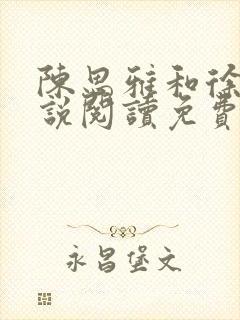 陳思雅和徐
說閱讀免費
永昌堡文